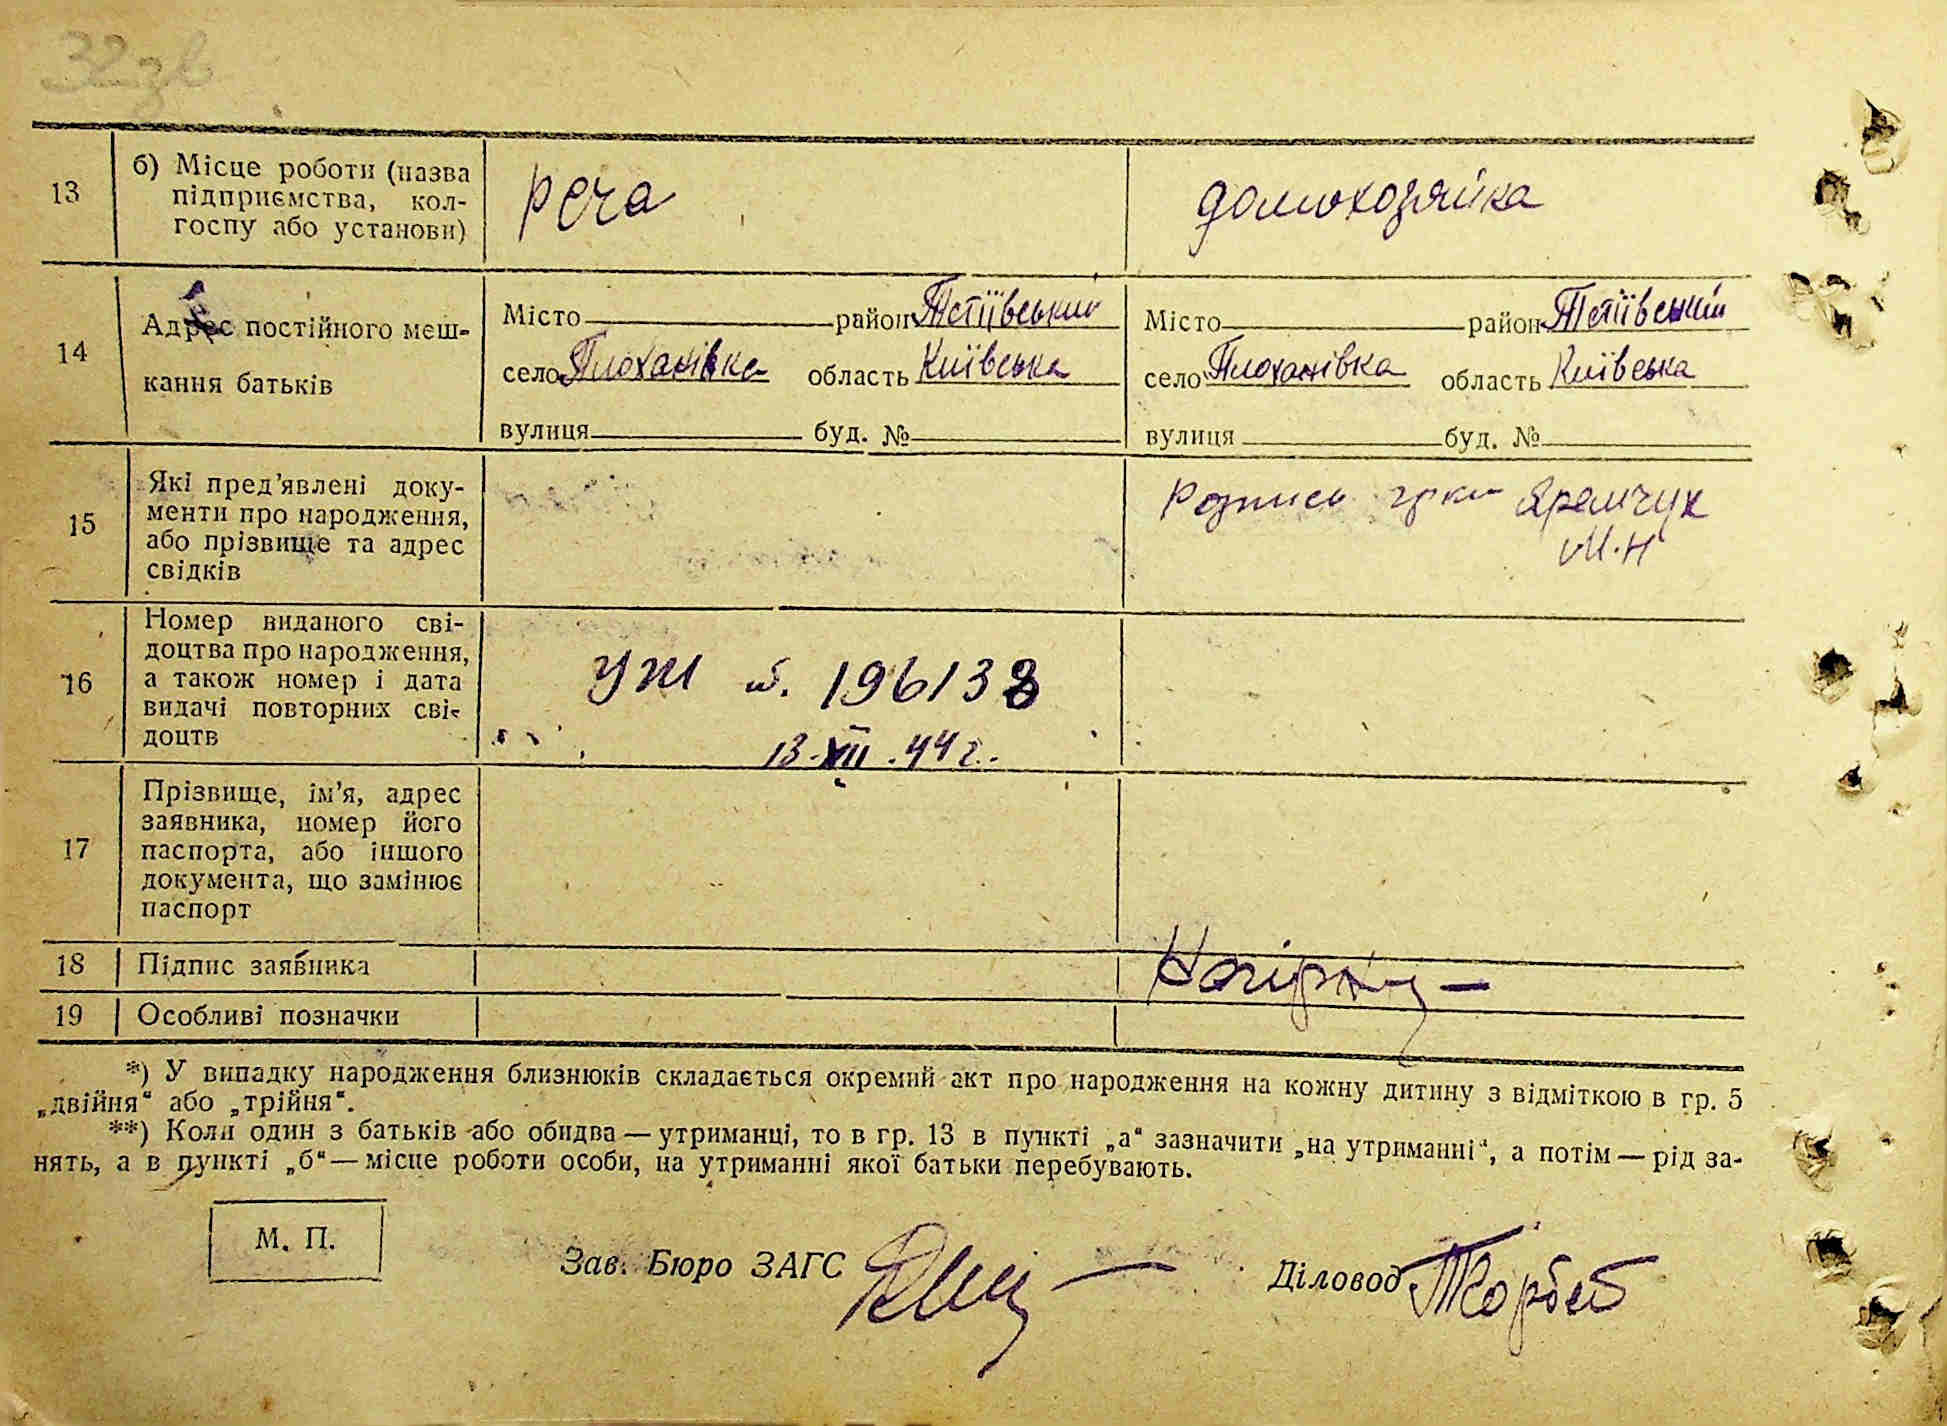 32 зв
13
б) Місце роботи (назва
підприємства, кол-
госпу або установи)
РСЧА
домохозяйка
14
Адрес постійного меш-
кання батьків
Місто район Тетіївський
село Плоханівка область Київська
вулиця буд. №
Місто район Тетіївський
село Плоханівка область Київська
вулиця буд. №
15
Які пред’явлені доку-
менти про народження,
або прізвище та адрес
свідків
Яремчук
М.Н
16
Номер виданого сві-
доцтва про народження,
а також номер і дата
видачі повторних сві-
доцтв
УЖ 196138
13.XII.44г.
17
Прізвище, ім’я, адрес
заявника, номер його
паспорта, або іншого
документа, що замінює
паспорт
18
Підпис заявника
19
Особливі позначки
*) У випадку народження близнюків складається окремий акт про народження на кожну дитину з відміткою в гр. 5
„двійня“ або „трійня“.
**) Коли один з батьків або обидва — утриманці, то в гр. 13 в пункті „а“ зазначити „на утриманні“, а потім — рід за-
нять, а в пункті „б“ — місце роботи особи, на утриманні якої батьки перебувають.
М. П.
Зав. Бюро ЗАГС
Діловод